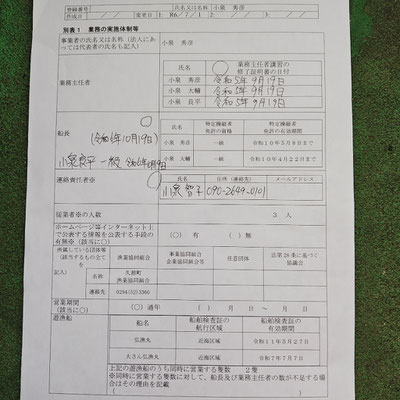 登録番号 氏名又は名称 小泉 秀彦
作成日 / / 変更日 1 R6/7/1 2 / / 3 / /
別表1 業務の実施体制等
事業者の氏名又は名称(法人にあっては代表者の氏名も記入) 小泉 秀彦
業務主任者 氏名 業務主任者講習の修了証明書の日付
小泉 秀彦 令和5年9月19日
小泉 大輔 令和5年9月19日
小泉 良平 令和5年9月19日
船長 氏名 特定操縦者免許の資格 特定操縦者免許の有効期間
(令和10年10月19日) 小泉 秀彦 一級 令和10年5月8日まで
小泉良平 一級 小泉 大輔 一級 令和10年4月22日まで
連絡責任者※ 氏名 住所(連絡先) メールアドレス
小泉 智子 090-2649-0101
従業者※の人数 3 人
ホームページ等インターネット上
で公表する情報を公表する手段の
有無※(該当に○) (○) 有 ( ) 無
所属している団体等(該当するもの全てを記入) 漁業協同組合 事業協同組合 企業協同組合等 任意団体 法第28条に基づく協議会
名称 久慈町漁業協同組合
連絡先 0294(52)3360
営業期間(該当に○) (○) 通年 ( ) 月 日 ~ 月 日
遊漁船 船名 船舶検査証の航行区域 船舶検査証の有効期間
弘漁丸 近海区域 令和11年3月27日
大さん弘漁丸 近海区域 令和7年7月7日
上記の遊漁船のうち同時に営業する隻数 2隻
※同時に営業する隻数に対して、船長及び業務主任者の数が不足する場合はその理由を記載
( )